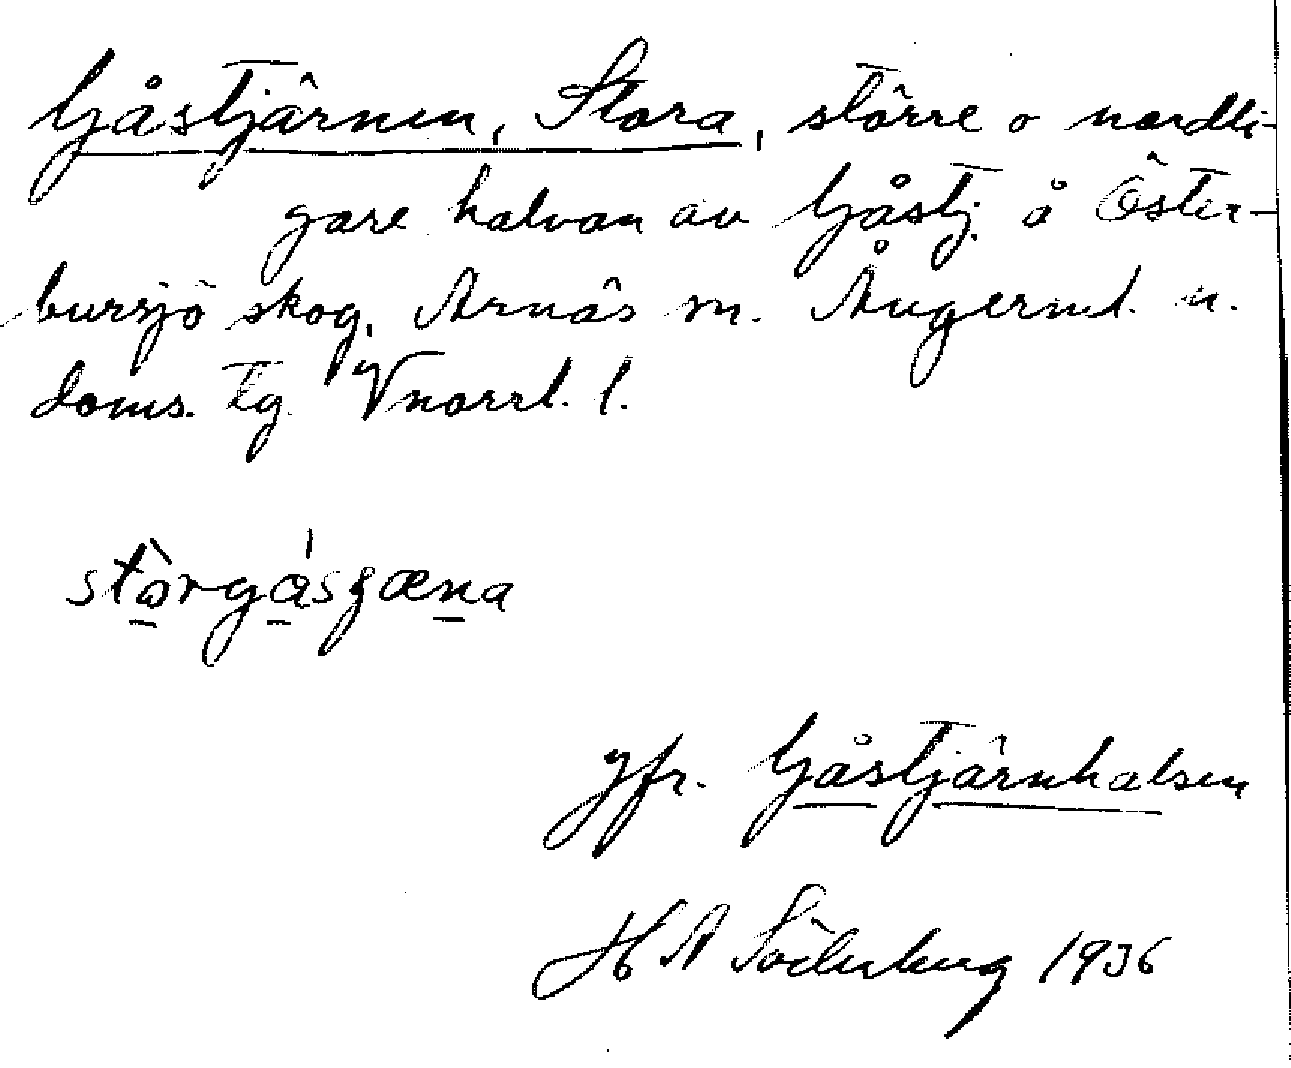 Gåstjärnen, Stora, större o nordli-
gare halvan av Gåstj. å Öster-
bursjö skog, Arnäs sn. Ångermd. n.
doms. tg. Vnorrl. l.
stòrgásʒæna
Jfr. Gåstjärnhalsen
H A Söderberg 1936